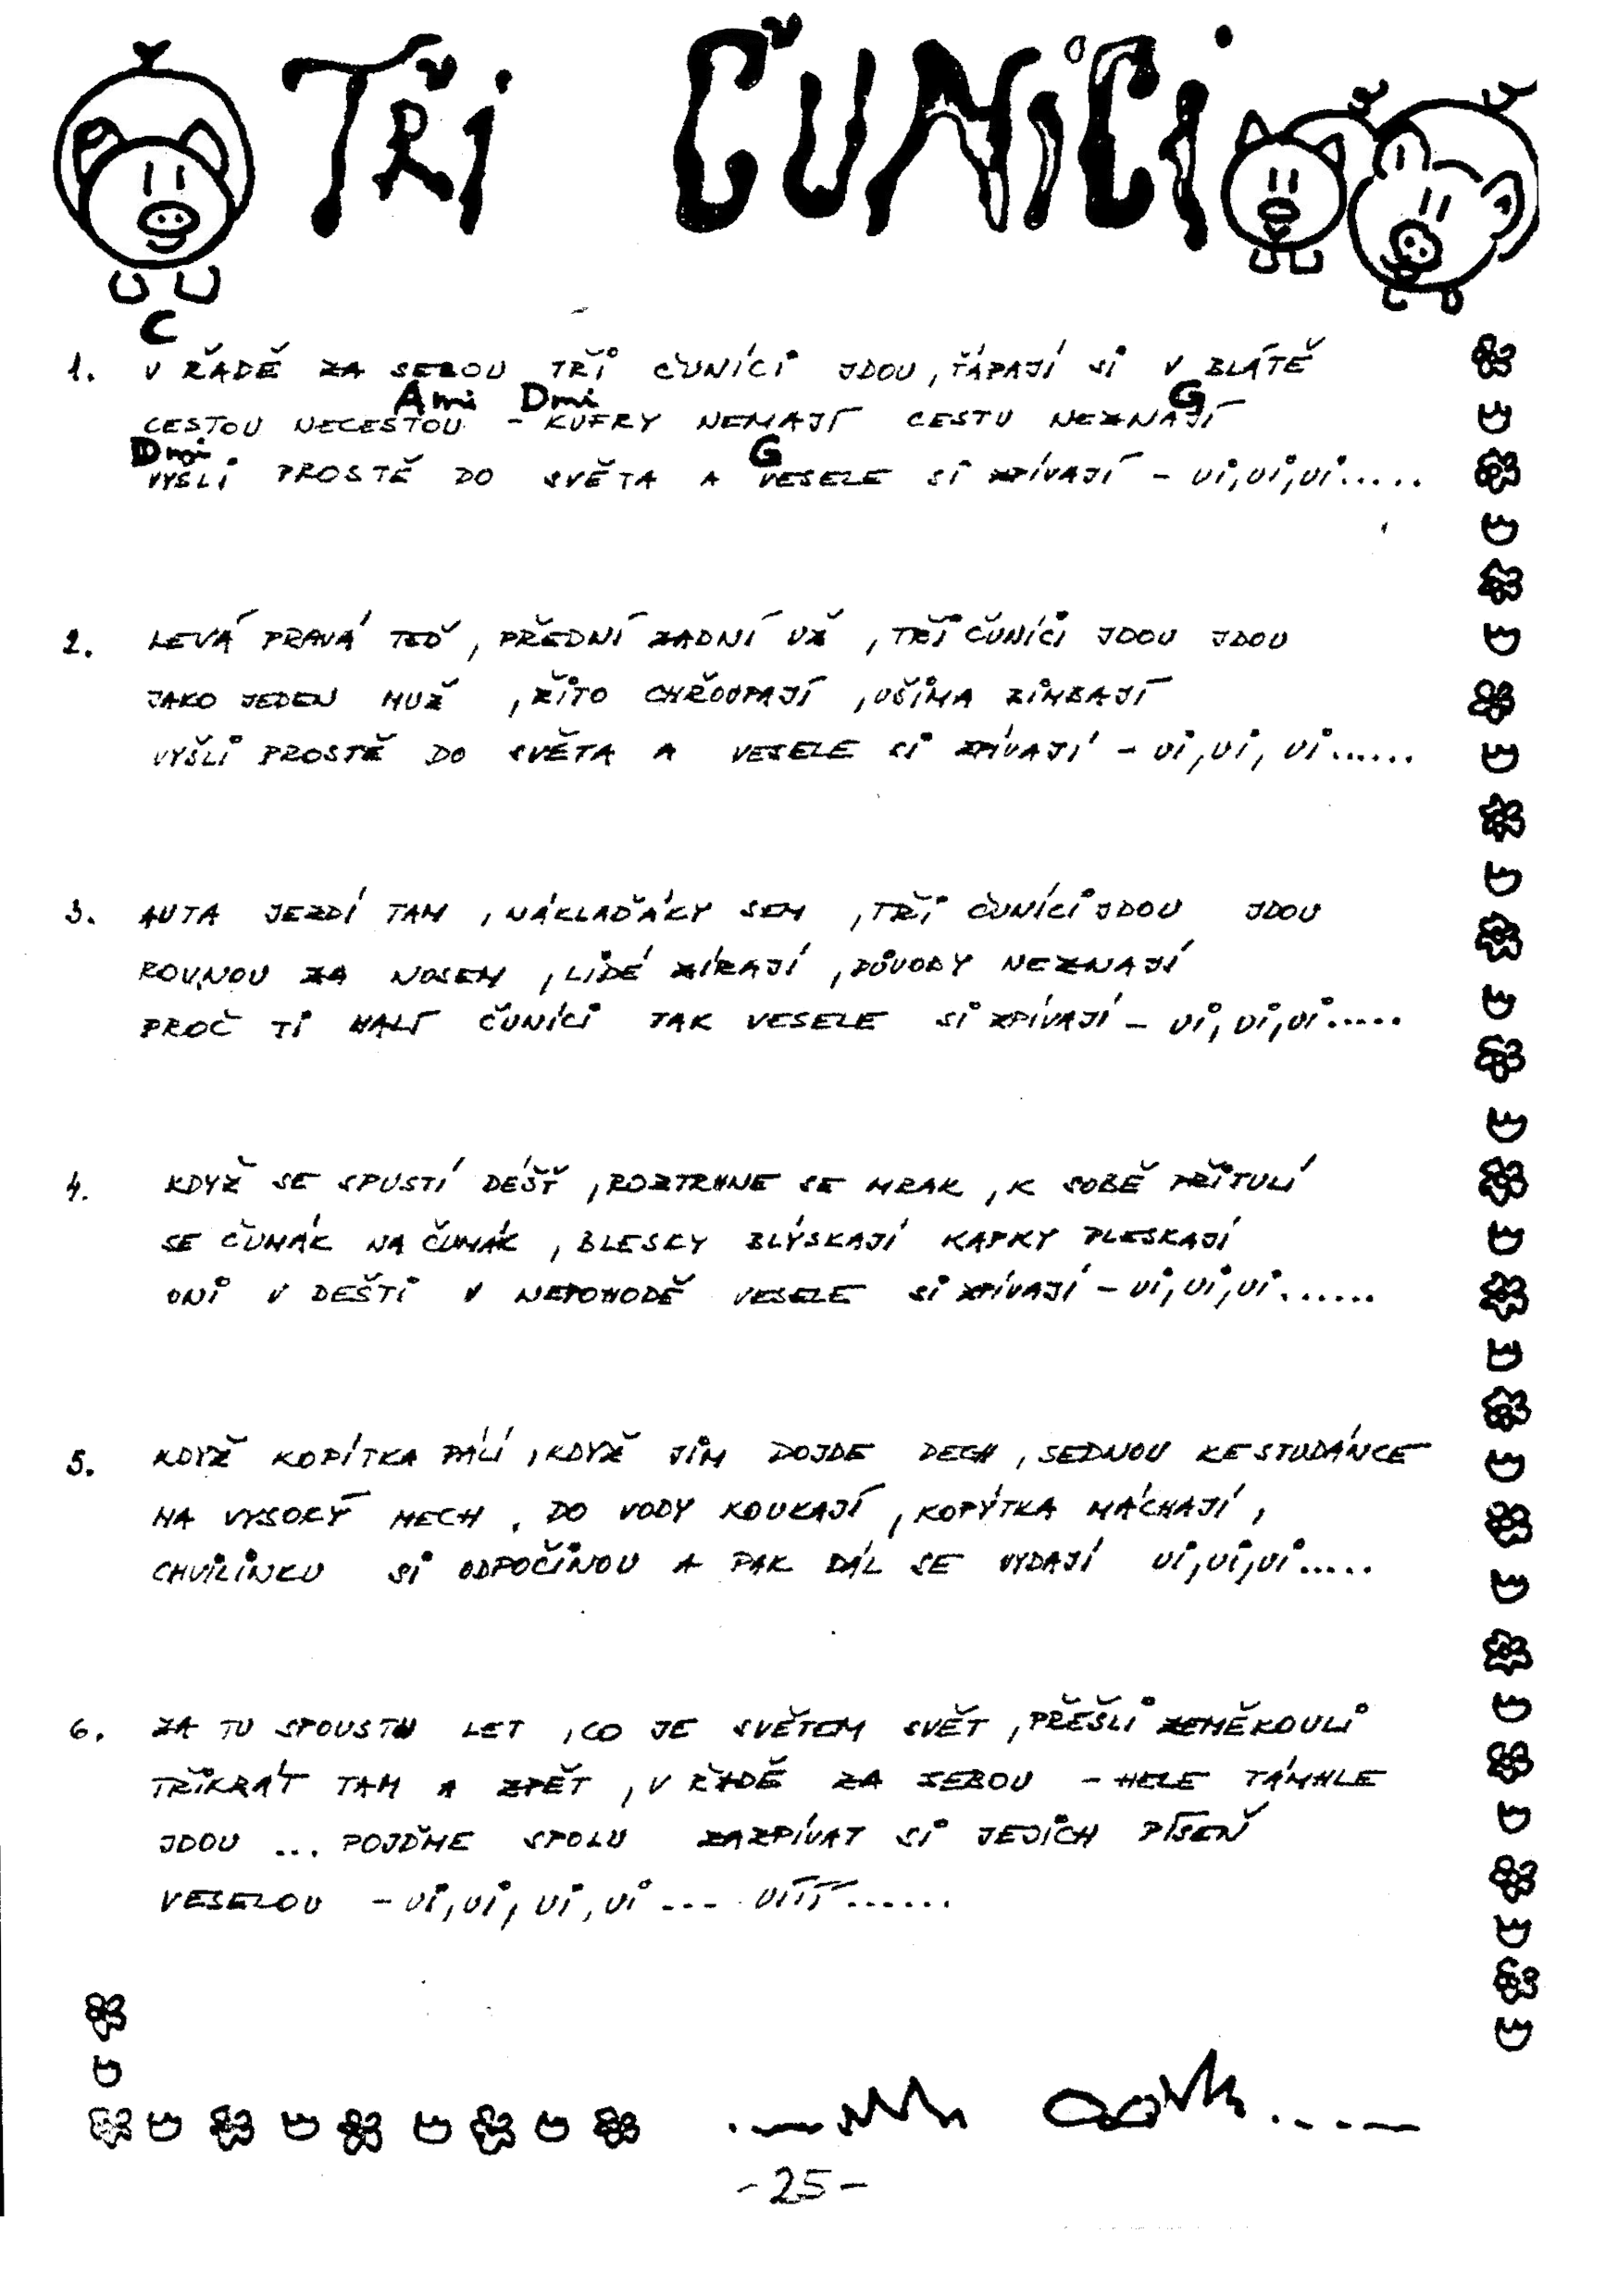 TŘi ČUNíCi
C
1. V ŘADĚ ZA SEBOU TŘi ČUNíCi JDOU, ŤÁPAJÍ Si V BLÁTĚ
Ami Dmi G
CESTOU NECESTOU - KUFRY NEMAJÍ CESTU NEZNAJÍ
Dmi G
VYŠLi PROSTĚ DO SVĚTA A VESELE Si ZPÍVAJÍ - Ui, Ui, Ui.....
2. LEVÁ PRAVÁ TEĎ, PŘEDNÍ ZADNÍ UŽ, TŘi ČUNÍCi JDOU JDOU
JAKO JEDEN MUŽ, ŽiTO CHŘOUPAJÍ, UŠiMA BiMBAJÍ
VYŠLi PROSTĚ DO SVĚTA A VESELE Si ZPÍVAJÍ - Ui, Ui, Ui......
3. AUTA JEZDÍ TAM, NÁKLAĎÁKY SEM, TŘi ČUNÍCi JDOU JDOU
ROVNOU ZA NOSEM, LiDÉ ZÍRAJÍ, DŮVODY NEZNAJÍ
PROČ Ti MALÍ ČUNÍCi TAK VESELE Si ZPÍVAJÍ - Ui, Ui, Ui.....
4. KDYŽ SE SPUSTÍ DÉŠŤ, ROZTRHNE SE MRAK, K SOBĚ PŘiTULÍ
SE ČUMÁK NA ČUMÁK, BLESKY BLÝSKAJÍ KAPKY PLESKAJÍ
ONi V DEŠTi V NEPOHODĚ VESELE Si ZPÍVAJÍ - Ui, Ui, Ui......
5. KDYŽ KOPÍTKA PÁLÍ, KDYŽ JiM DOJDE DECH, SEDNOU KE STUDÁNCE
NA VYSOKÝ MECH. DO VODY KOUKAJÍ, KOPÝTKA MÁCHAJÍ,
CHViLiNKU Si ODPOČiNOU A PAK DÁL SE VYDAJÍ Ui, Ui, Ui.....
6. ZA TU SPOUSTU LET, CO JE SVĚTEM SVĚT, PŘEŠLi ZEMĚKOULi
TŘiKRÁT TAM A ZPĚT, V ŘADĚ ZA SEBOU - HELE TÁMHLE
JDOU ... POJĎME SPOLU ZAZPÍVAT Si JEJiCH PÍSEŇ
VESELOU - Ui, Ui, Ui, Ui .... UiÍÍ......
- 25 -